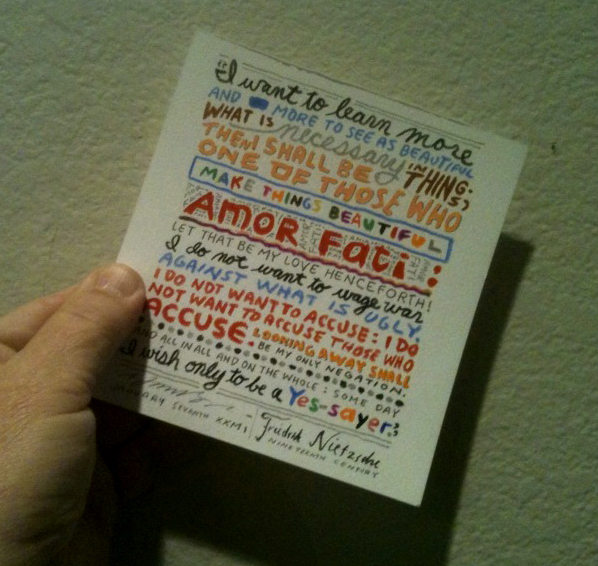 "I want to learn more
AND MORE TO SEE AS BEAUTIFUL
WHAT IS necessary IN THINGS;
THEN SHALL BE
ONE OF THOSE WHO
MAKE THINGS BEAUTIFUL
AMOR Fati:
LET THAT BE MY LOVE HENCEFORTH!
I do not want to wage war
AGAINST WHAT IS UGLY.
I DO NOT WANT TO ACCUSE: I DO
NOT WANT TO ACCUSE THOSE WHO
ACCUSE. LOOKING AWAY SHALL
BE MY ONLY NEGATION.
AND ALL IN ALL AND ON THE WHOLE: SOME DAY
I wish only to be a Yes-sayer."
Fredrich Nietzsche
JANUARY SEVENTH XXMI
NINETEENTH CENTURY